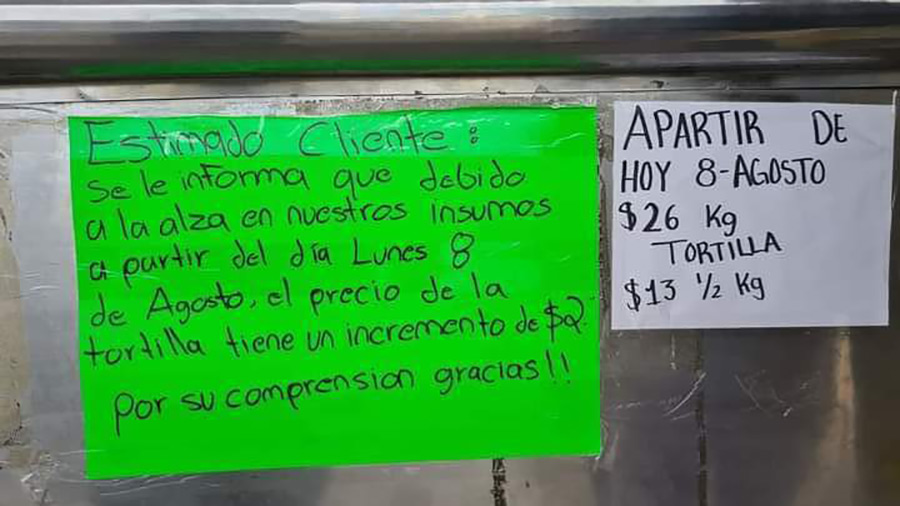 Estimado Cliente:
se le informa que debido
a la alza en nuestros insumos
a partir del día Lunes 8
de Agosto, el precio de la
tortilla tiene un incremento de $2.
por su comprension gracias!!
APARTIR DE
HOY 8-AGOSTO
$26 Kg
TORTILLA
$13 ½ Kg